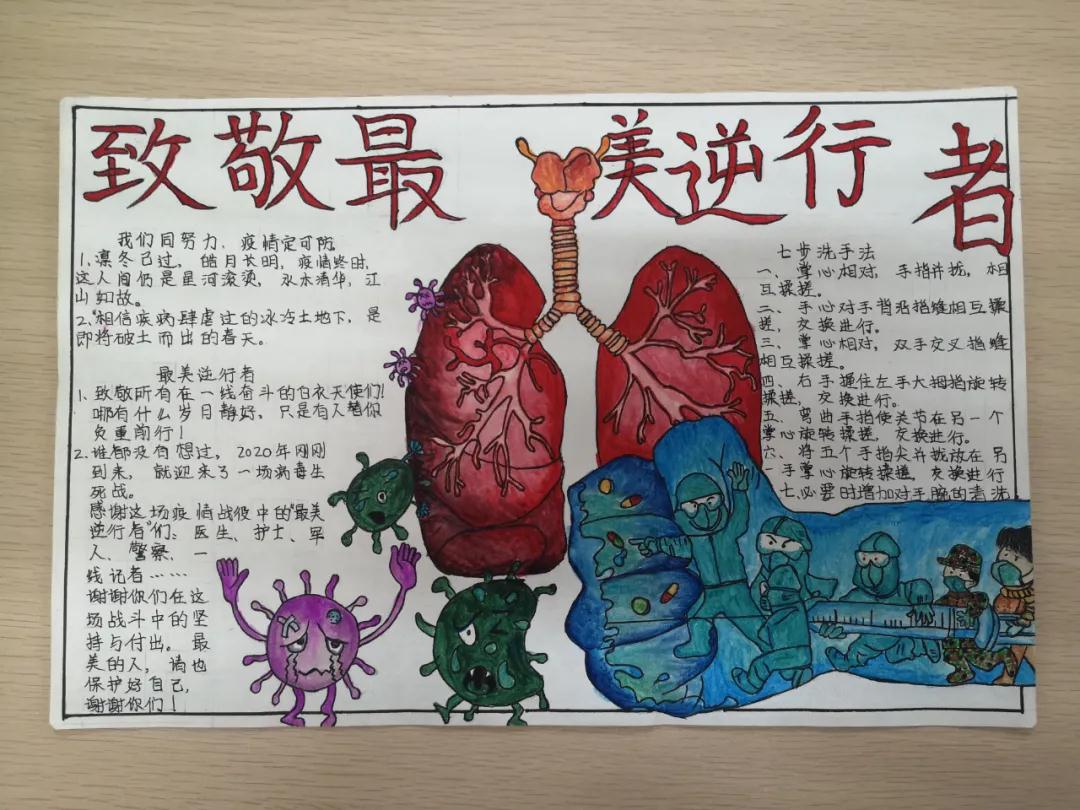 致敬最美逆行者
我们同努力、疫情定可防
1、凛冬已过，皓月长明，疫情终时，
这人间仍是星河滚烫，永木清华，江
山如故。
2、"相信疾病肆虐过的冰冷土地下，是
即将破土而出的春天。
最美逆行者
1、致敬所有在一线奋斗的白衣天使们！
哪有什么岁月静好，只是有人替你
负重前行！
2、谁都没有想过，2020年刚刚
到来，就迎来了一场病毒生
死战。
感谢这场疫情战役中的"最美
逆行者"们：医生、护士、军
人、警察、一
线记者……
谢谢你们在这
场战斗中的坚
持与付出。最
美的人，请也
保护好自己，
谢谢你们！
七步洗手法
一、掌心相对，手指并拢，相
互揉搓。
二、手心对手背沿指缝相互揉
搓，交换进行。
三、掌心相对，双手交叉指缝
相互揉搓。
四、右手握住左手大拇指旋转
揉搓，交换进行。
五、弯曲手指使关节在另一个
掌心旋转揉搓，交换进行。
六、将五个手指尖并拢放在另
一手掌心旋转揉搓，交换进行
七、必要时增加对手腕的清洗